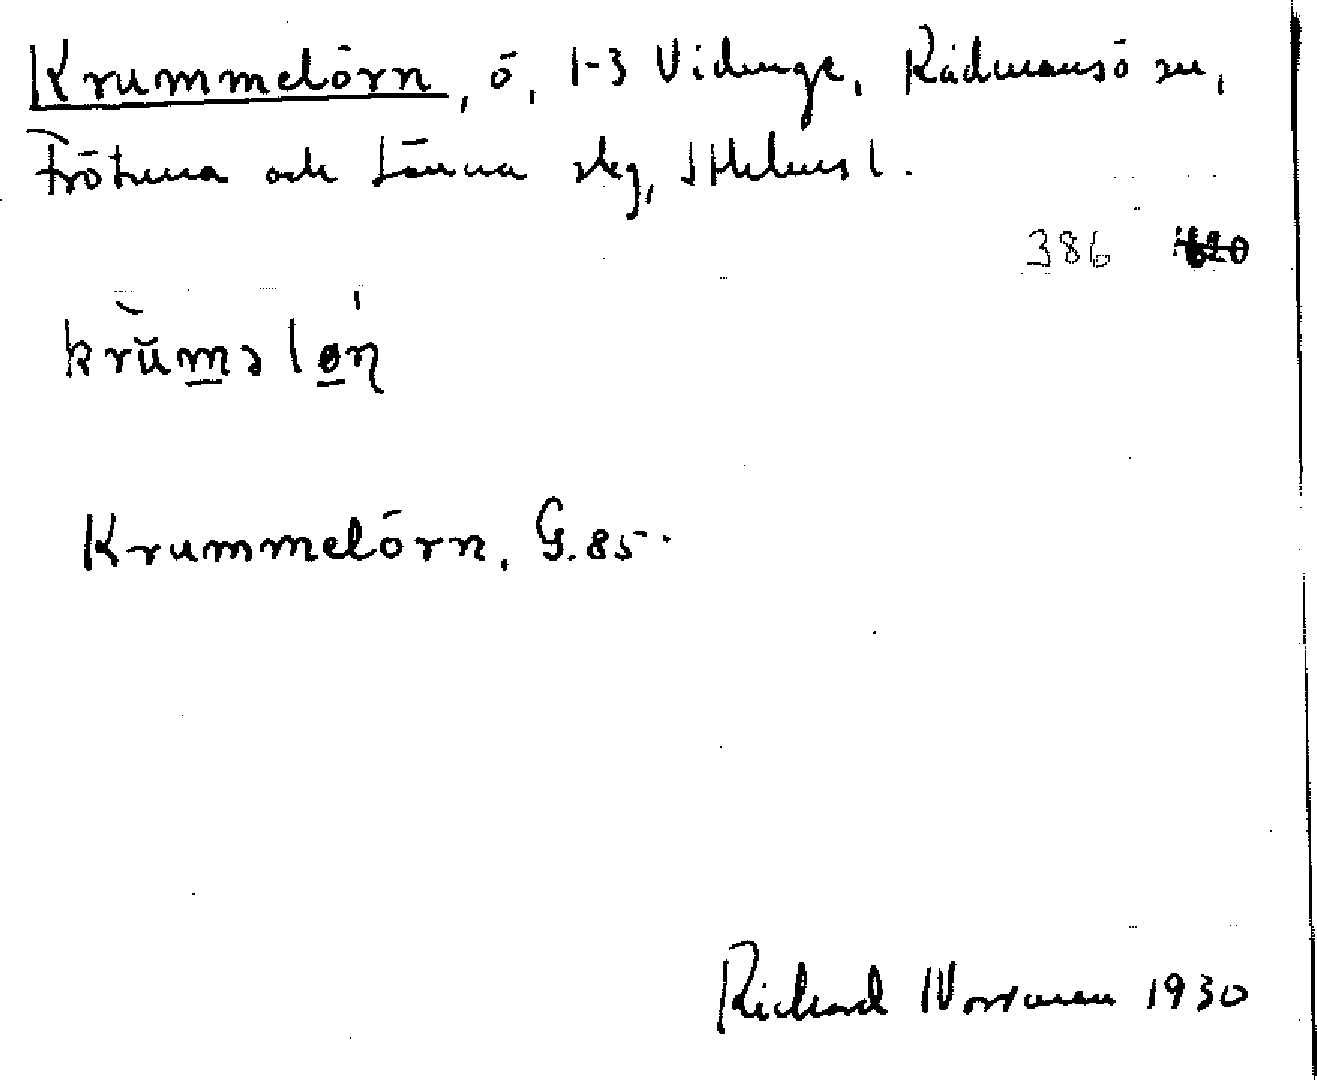 Krummelörn, ö, 1-3 Vidinge, Rådmansö sn,
Frötuna och Länna skg, Sthlms l.
386 420
krùməlөɳ
Krummelörn. G. 85.
Richard Norrman 1930